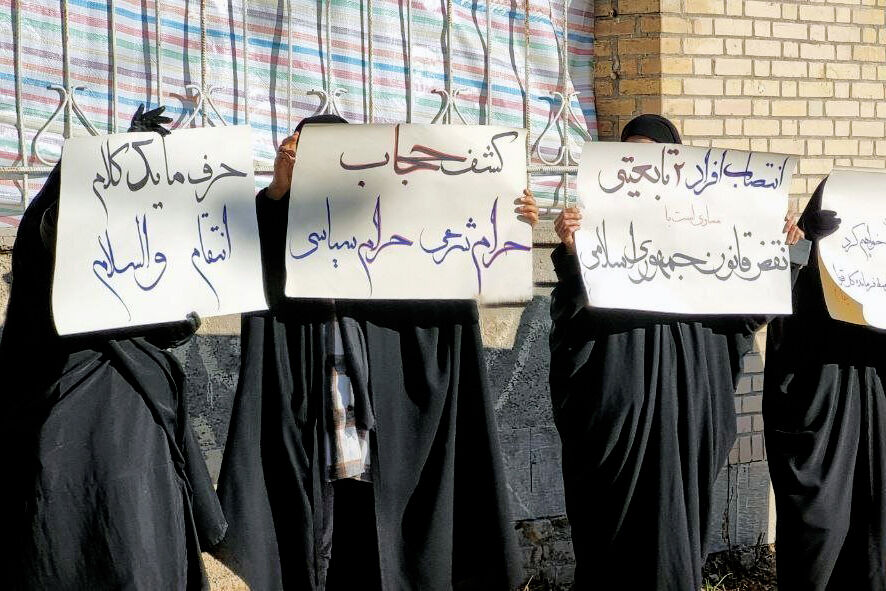 حرف ما یک کلام
انتقام والسلام
کشف حجاب
حرام شرعی حرام سیاسی
انتصاب افراد ۲ تابعیتی
مساوی است با
نقض قانون جمهوری اسلامی
خواهیم کرد